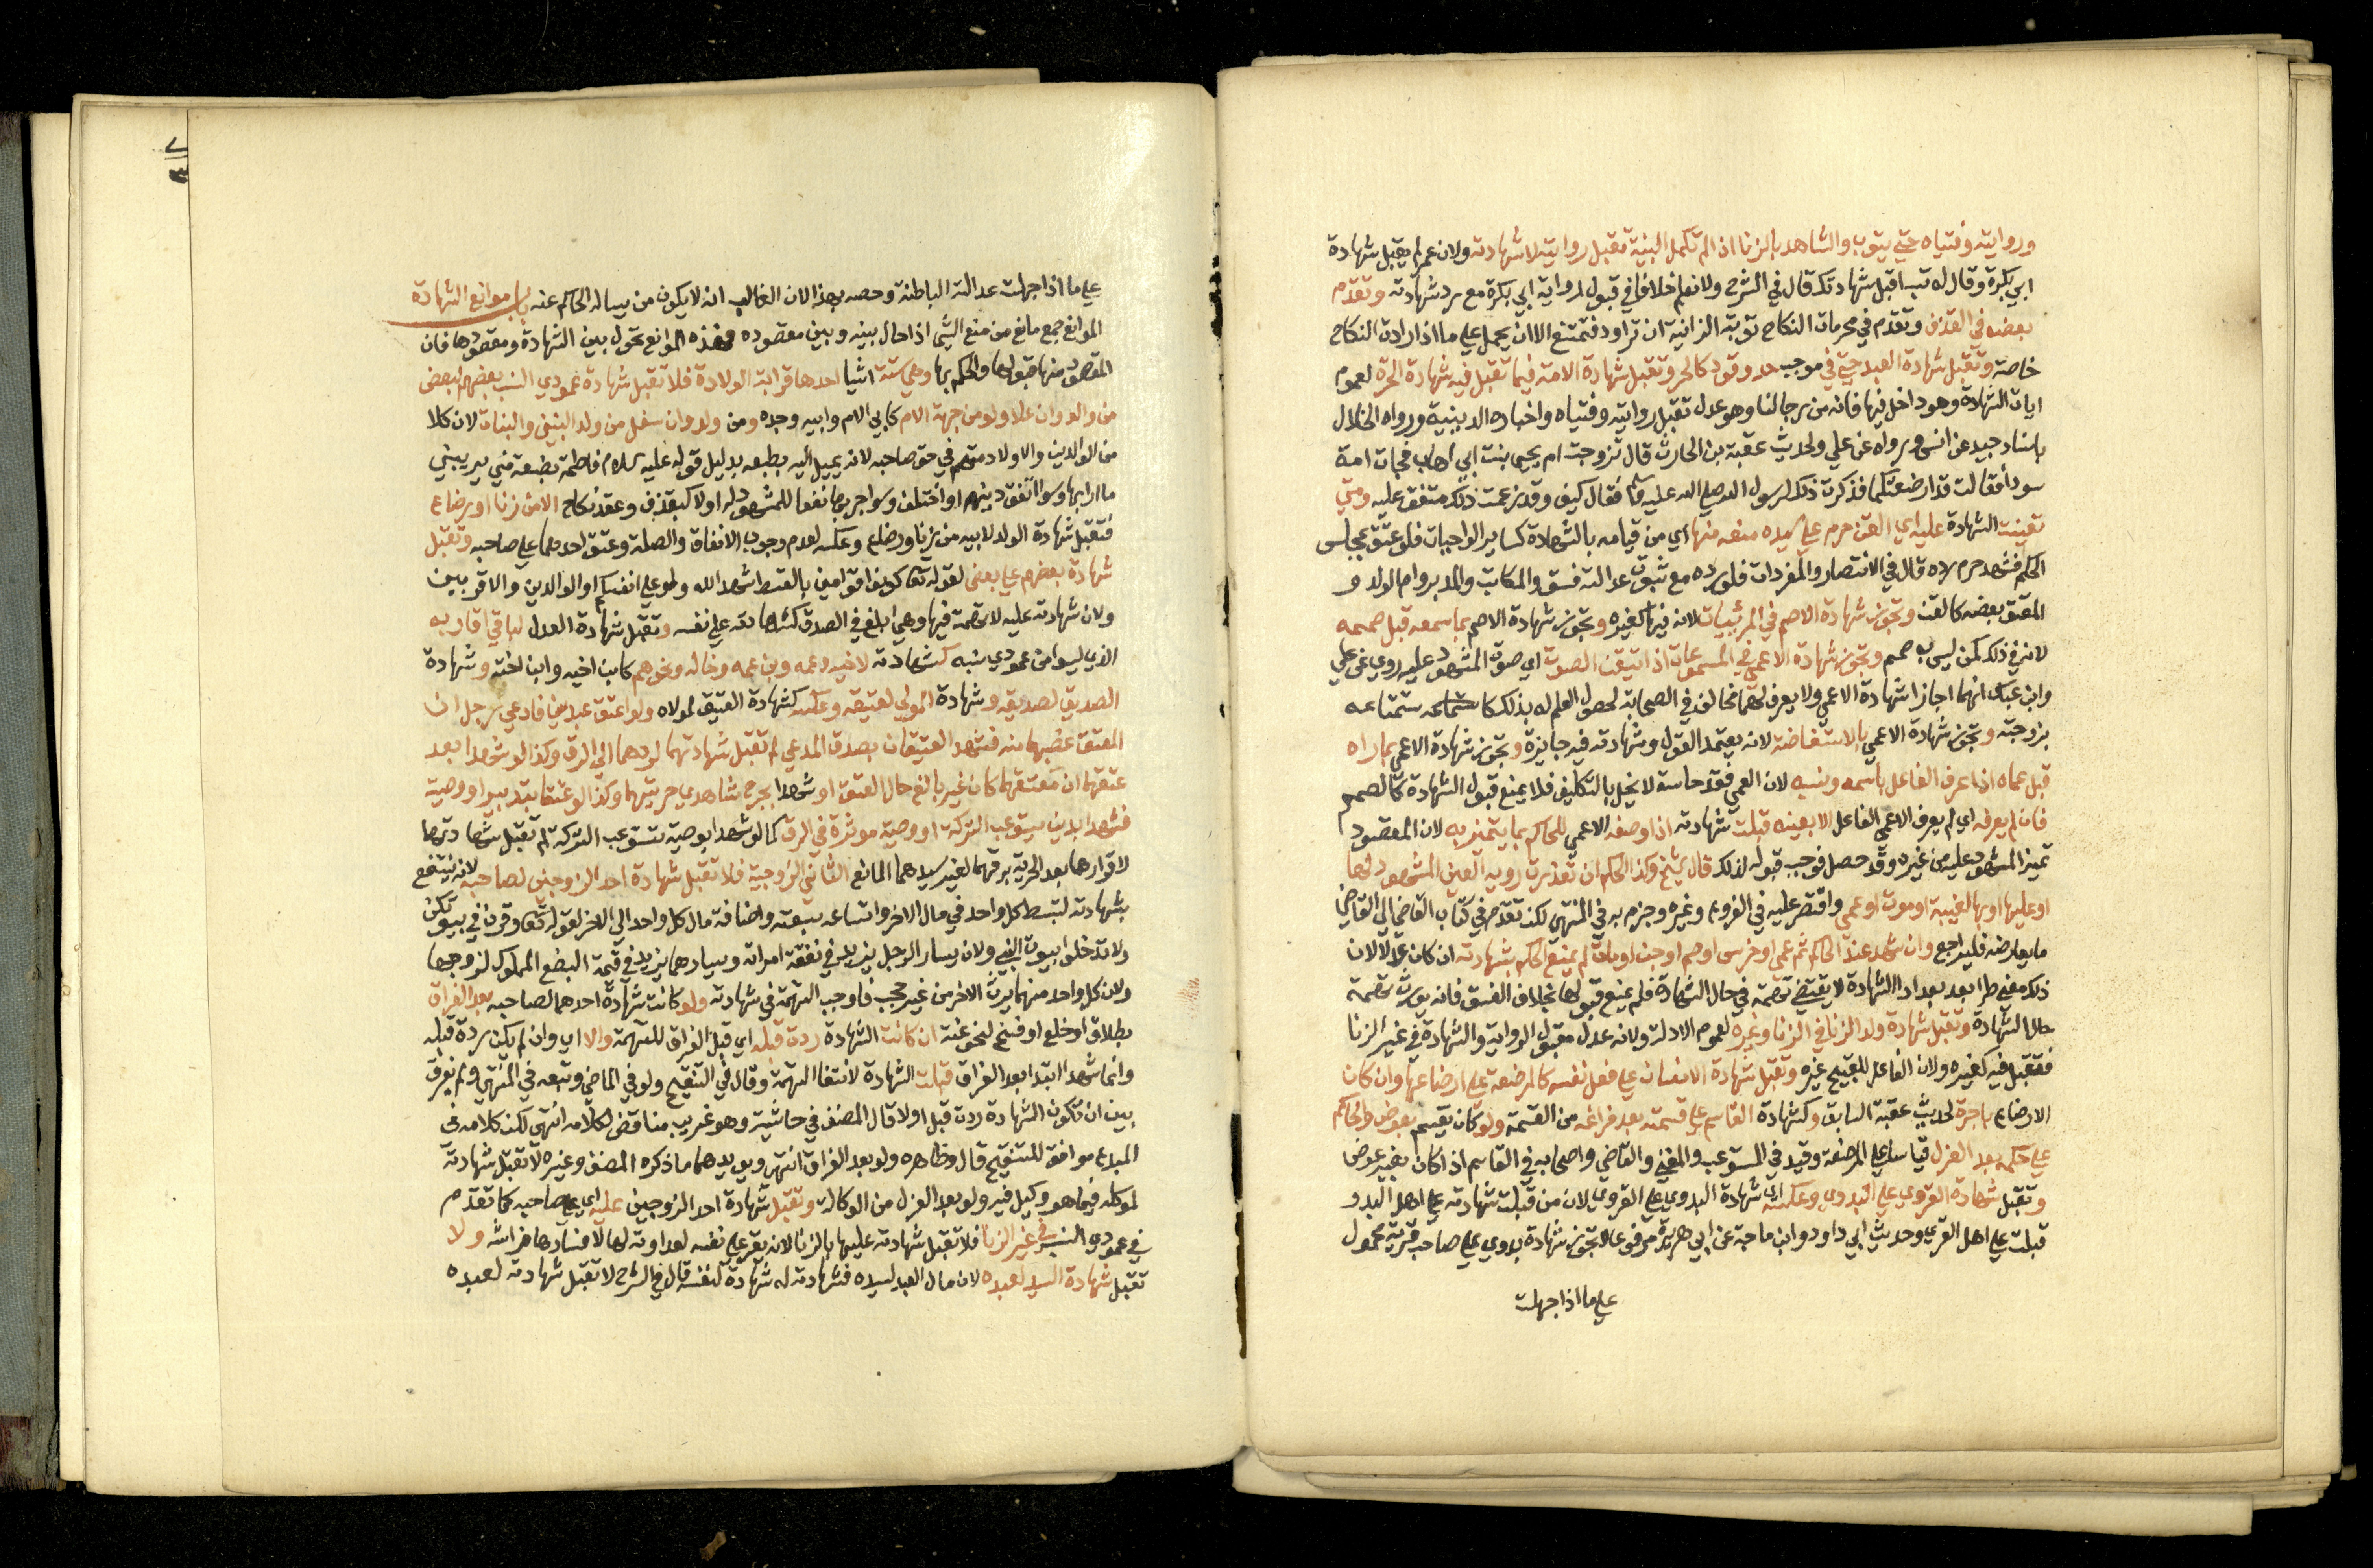 وروايته وفتياه حتى يتوب والشاهد بالزنا اذا لم تكمل البينة تقبل روايته لا شهادته ولان عمر لم يقبل شهادة
ابي بكرة وقال له تب اقبل شهادتك قال في الشرح ولا نعلم خلافا في قبول رواية ابي بكرة مع رد شهادته وتقدم
بعضه في القذف وتقدم في محرمات النكاح توبة الزانية ان تراود فتمتنع الا ان يحمل على ما اذا ارادة النكاح
خاصة وتقبل شهادة العبد حتى في موجب حد وقود كالحر وتقبل شهادة الامة فيما تقبل فيه شهادة الحرة لعموم
ايات الشهادة وهو داخل فيها فانه من رجالنا وهو عدل تقبل روايته وفتياه واخباره الدينية ورواه الخلال
باسناد جيد عن انس ورواه عن علي ولحديث عقبة بن الحارث قال تزوجت ام يحيى بنت ابي اهاب فجات امة
سودا فقالت قد ارضعتكما فذكرت ذلك لرسول الله صلى الله عليه وسلم فقال كيف وقد زعمت ذلك متفق عليه ومتى
تعينت الشهادة عليه اي القن حرم على سيده منعه منها اي من قيامه بالشهادة كساير الواجبات فلو عتق بمجلس
الحكم فشهد حرم رده قال في الانتصار والمفردات فلو رده مع ثبوت عدالته فسق والمكاتب والمدبر وام الولد و
المعتق بعضه كالقن وتجوز شهادة الاصم في المرئيات لانه فيها كغيره وتجوز شهادة الاصم بما سمعه قبل صممه
لانه في ذلك كمن ليس به صمم وتجوز شهادة الاعمى في المسموعات اذا تيقن الصوت اي صوت المشهود عليه روي عن علي
وابن عباس انهما اجازا شهادة الاعمى ولا يعرف لهما مخالف في الصحابة لحصول العلم له بذلك كاستمتاعه
بزوجته وتجوز شهادة الاعمى بالاستفاضة لانه يعتمد القول وشهادته فيه جايزة وتجوز شهادة الاعمى بما راه
قبل عماه اذا عرف الفاعل باسمه ونسبه لان العمى فقد حاسة لا يخل بالتكليف فلا يمنع قبول الشهادة كالصمم
فان لم يعرفه اي لم يعرف الاعمى الفاعل الا بعينه قبلت شهادته اذا وصفه الاعمى للحاكم بما يتميز به لان المقصود
تميز المشهود عليه من غيره وقد حصل فوجب قبوله لذلك قال الشيخ وكذا الحكم ان تعذرت رويه العين المشهود لها
او عليها او بها لغيبة او موت او عمى واقتصر عليه في الفروع وغيره وجزم به في المنتهى لكن تقدم في كتاب القاضي الى القاضي
ما يعارضه فليراجع وان شهد عند الحاكم ثم عمي او خرس او صم او جن او مات لم يمنع الحكم بشهادته ان كان عدلا لان
ذلك معنى طرا بعد ادا الشهادة لا يقتضي تهمة في حال الشهادة فلم يمنع قبولها بخلاف الفسق فانه يورث تهمة
حال الشهادة وتقبل شهادة ولد الزنا في الزنا وغيره لعموم الادلة ولانه عدل مقبول الرواية والشهادة في غير الزنا
فتقبل فيه كغيره ولان الفاعل للقبيح غيره وتقبل شهادة الانسان على فعل نفسه كالمرضعة على ارضاعها وان كان
الارضاع باجرة لحديث عقبة السابق وكشهادة القاسم على قسمته بعد فراغه من القسمة ولو كان يقسم بعوض والحاكم
على حكمه بعد العزل قياسا على المرضعة وقيد في المستوعب والمغني والقاضي واصحابه في القاسم اذا كان بغير عوض
وتقبل شهادة القروي على البدوي وعكسه اي شهادة البدوي على القروي لان من قبلت شهادته على اهل البدو
قبلت على اهل القرى وحديث ابي داود وابن ماجة عن ابي هريرة مرفوعا لا تجوز شهادة بدوي على صاحب قرية محمول
على ما اذا جهلت
على ما اذا جهلت عدالته الباطنة وخصه بهذا لان الغالب انه لا يكون من يساله الحاكم عنه باب موانع الشهادة
الموانع جمع مانع من منع الشيء اذا حال بينه وبين مقصوده فهذه الموانع تحول بين الشهادة ومقصودها فان
المقصود منها قبولها والحكم بها وهي ستة اشيا احدها قرابة الولادة فلا تقبل شهادة عمودي النسب بعضهم لبعض
من والد وان علا ولو من جهة الام كابي الام وابيه وجده ومن ولد وان سفل من ولد البنين والبنات لان كلا
من الوالدين والاولاد متهم في حق صاحبه لانه يميل اليه بطبعه بدليل قوله عليه السلام فاطمة بضعة مني يريبني
ما ارابها وسوا اتفق دينهم او اختلف وسوا جر بها نفعا للمشهود له او لا كبقذف وعقد نكاح الا من زنا او رضاع
فتقبل شهادة الولد لابيه من زنا ورضاع وعكسه لعدم وجوب الانفاق والصلة وعتق احدهما على صاحبه وتقبل
شهادة بعضهم على بعض لقوله تعالى كونوا قوامين بالقسط شهدا لله ولو على انفسكم او الوالدين والاقربين
ولان شهادته عليه لا تهمة فيها وهي ابلغ في الصدق كشهادته على نفسه وتقبل شهادة العدل لباقي اقاربه
الذين ليسوا من عمودي نسبه كشهادته لاخيه وعمه وبن عمه وخاله ونحوهم كابن اخيه وابن اخته وشهادة
الصديق لصديقه وشهادة المولى لعتيقه وعكسه كشهادة العتيق لمولاه ولو اعتق عبدين فادعى رجل ان
المعتق غصبهما منه فشهد العتيقان بصدق المدعي لم تقبل شهادتهما لعودهما الى الرق وكذا لو شهدا بعد
عتقهما ان معتقهما كان غير بالغ حال العتق او شهدا بجرح شاهدي حريتهما وكذا لو عتقا بتدبير او وصية
فشهدا بدين يستوعب التركة او وصية موثرة في الرق كما لو شهدا بوصية تستوعب التركة لم تقبل شهادتهما
لاقرارهما بعد الحرية برقهما لغير سيدهما المانع الثاني الزوجية فلا تقبل شهادة احد الزوجين لصاحبه لانه ينتفع
بشهادته لتبسط كل واحد في مال الاخر واتساعه بسعته واضافة مال كل واحد الى الاخر لقوله تعالى وقرن في بيوتكن
ولا تدخلوا بيوت النبي ولان يسار الرجل يزيد في نفقة امراته ويسارها يزيد في قيمة البضع المملوك لزوجها
ولان كل واحد منهما يرث الاخر من غير حجب فاوجب التهمة في شهادته ولو كانت شهادة احدهما لصاحبه بعد الفراق
بطلاق او خلع او فسخ لنحو عنة ان كانت الشهادة ردت قبله اي قبل الفراق للتهمة والا اي وان لم يكن ردة قبله
وانما شهد ابتدا بعد الفراق قبلت الشهادة لانتفا التهمة وقال في التنقيح ولو في الماضي وتبعه في المنتهى ولم يفرق
بين ان تكون الشهادة ردت قبل او لا قال المصنف في حاشيته وهو غريب مناقض لكلامه انتهى لكن كلامه في
المبدع موافق للتنقيح قال وظاهره ولو بعد الفراق انتهى ويويدهما ما ذكره المصنف وغيره لا تقبل شهادته
لموكله فيما هو وكيل فيه ولو بعد العزل من الوكالة وتقبل شهادة احد الزوجين عليه اي على صاحبه كما تقدم
في عمودي النسب في غير الزنا فلا تقبل شهادته عليها بالزنا لانه يقر على نفسه لعداوته لها لافسادها فراشه ولا
تقبل شهادة السيد لعبده لان مال العبد لسيده فشهادته له شهادة لنفسه قال في الشرح لا تقبل شهادته لعبده